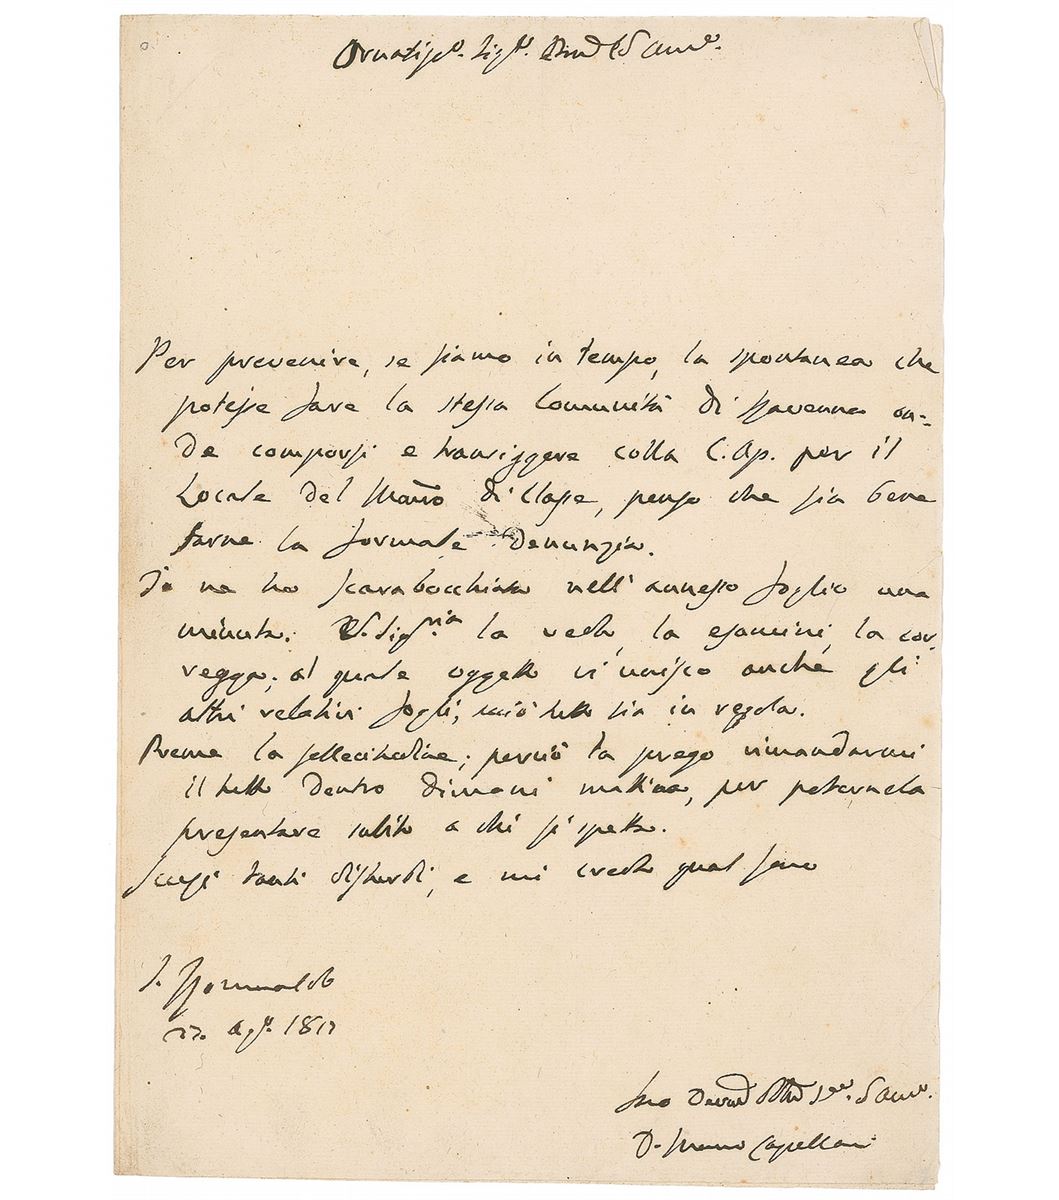 Ornatis.mo Sig.r
Per prevenire, se siamo in tempo, la spontanea che
potesse fare la stessa Comunità di Ravenna on-
de comporsi e transiggere colla C. Ap. per il
Locale del Mañro di Classe, penso che sia bene
farne la formale Denunzia.
Io ne ho scarabocchiata nell'annesso foglio una
minuta. V. Sig.ria la veda, la esamini, la cor-
regga; al quale oggetto vi unisco anche gli
altri relativi fogli, tutto sia in regola.
Preme la sollecitudine; perciò la prego rimandarmi
il tutto dentro dimani mattina, per poternela
presentare subito a chi si spetta.
Scusi tanti disturbi, e mi creda qual sono
S. Romualdo
27. Ag.to 1817
Suo
D. Mauro Capellari